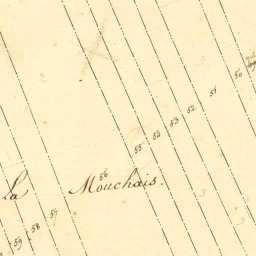 50
51
52
53
54
55
56
La Mouchais.
57
58
59